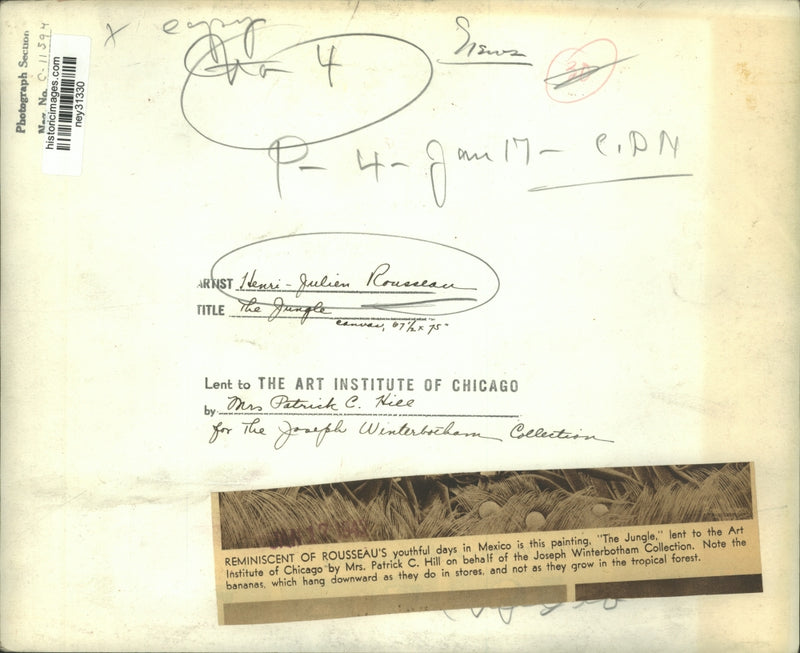 Photograph Section
Neg. No. C-11594
historicimages.com
ney31330
x
No 4
News
30
P- 4- Jan 17- C.D.N
ARTIST Henri-Julien Rousseau
TITLE The Jungle
canvas, 67½ x 75"
Lent to THE ART INSTITUTE OF CHICAGO
by Mrs Patrick C. Hill
for The Joseph Winterbotham Collection
REMINISCENT OF ROUSSEAU'S youthful days in Mexico is this painting, "The Jungle," lent to the Art
Institute of Chicago by Mrs. Patrick C. Hill on behalf of the Joseph Winterbotham Collection. Note the
bananas, which hang downward as they do in stores, and not as they grow in the tropical forest.